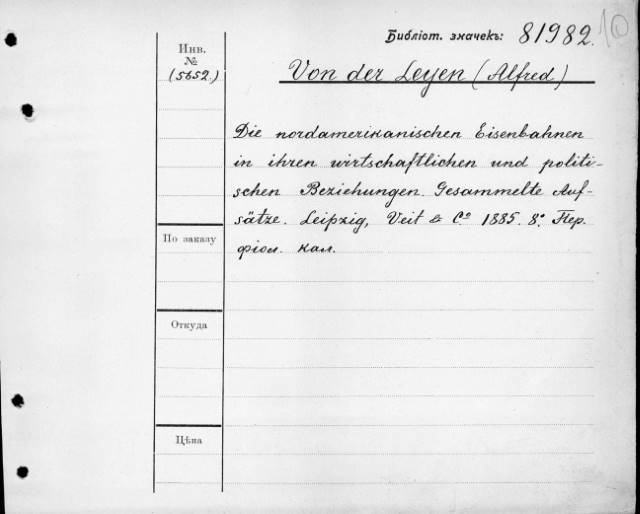 Библіот. значекъ: 81982. 10
Инв.
№
(5652.)
Von der Leyen (Alfred)
Die nordamerikanischen Eisenbahnen
in ihren wirtschaftlichen und politi-
schen Beziehungen. Gesammelte Auf-
sätze. Leipzig, Veit & Co 1885. 8º. Пер.
фіол. кал.
По заказу
Откуда
Цѣна